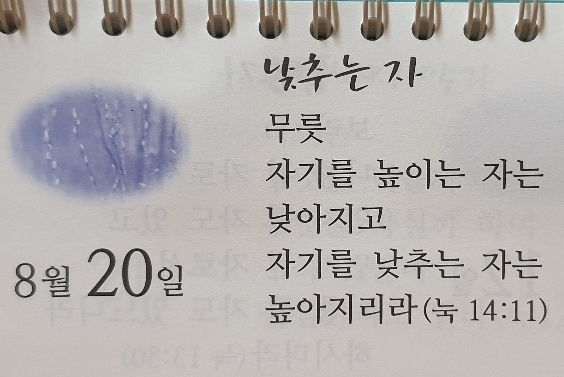 낮추는 자
무릇
자기를 높이는 자는
낮아지고
자기를 낮추는 자는
높아지리라(눅 14:11)
8월 20일